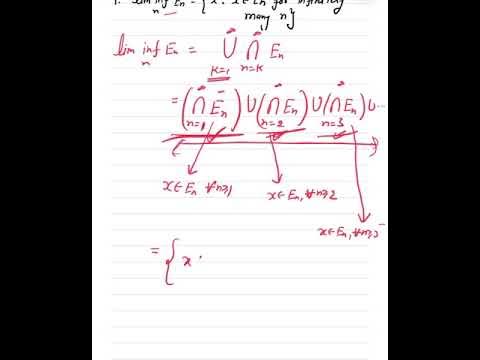 1. lim inf En = {x : x ∈ En for infinitely
n
many n}
lim inf En = ∞⋃k=1 ∞⋂n=k En
n
= (∞⋂n=1 En) ∪ (∞⋂n=2 En) ∪ (∞⋂n=3 En) ∪ ...
x ∈ En ∀ n≥1
x ∈ En, ∀ n≥2
x ∈ En, ∀ n≥3
= { x :